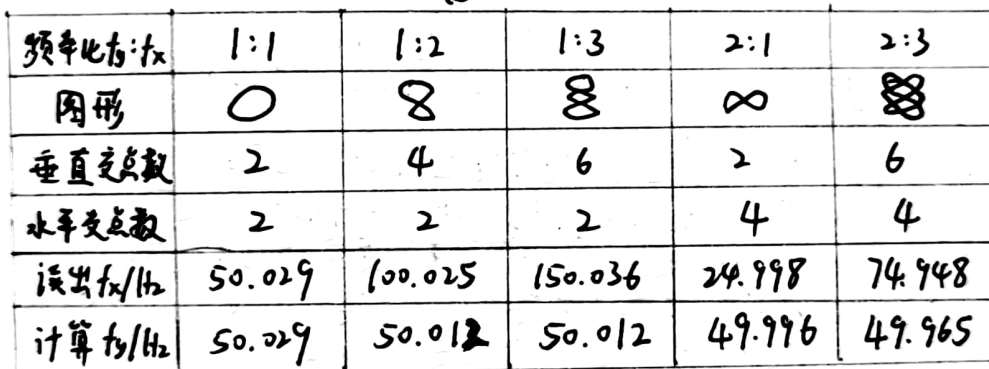 频率比fy:fx 1:1 1:2 1:3 2:1 2:3
图形
垂直交点数 2 4 6 2 6
水平交点数 2 2 2 4 4
读出fx/Hz 50.029 100.025 150.036 24.998 74.948
计算fy/Hz 50.029 50.012 50.012 49.996 49.965